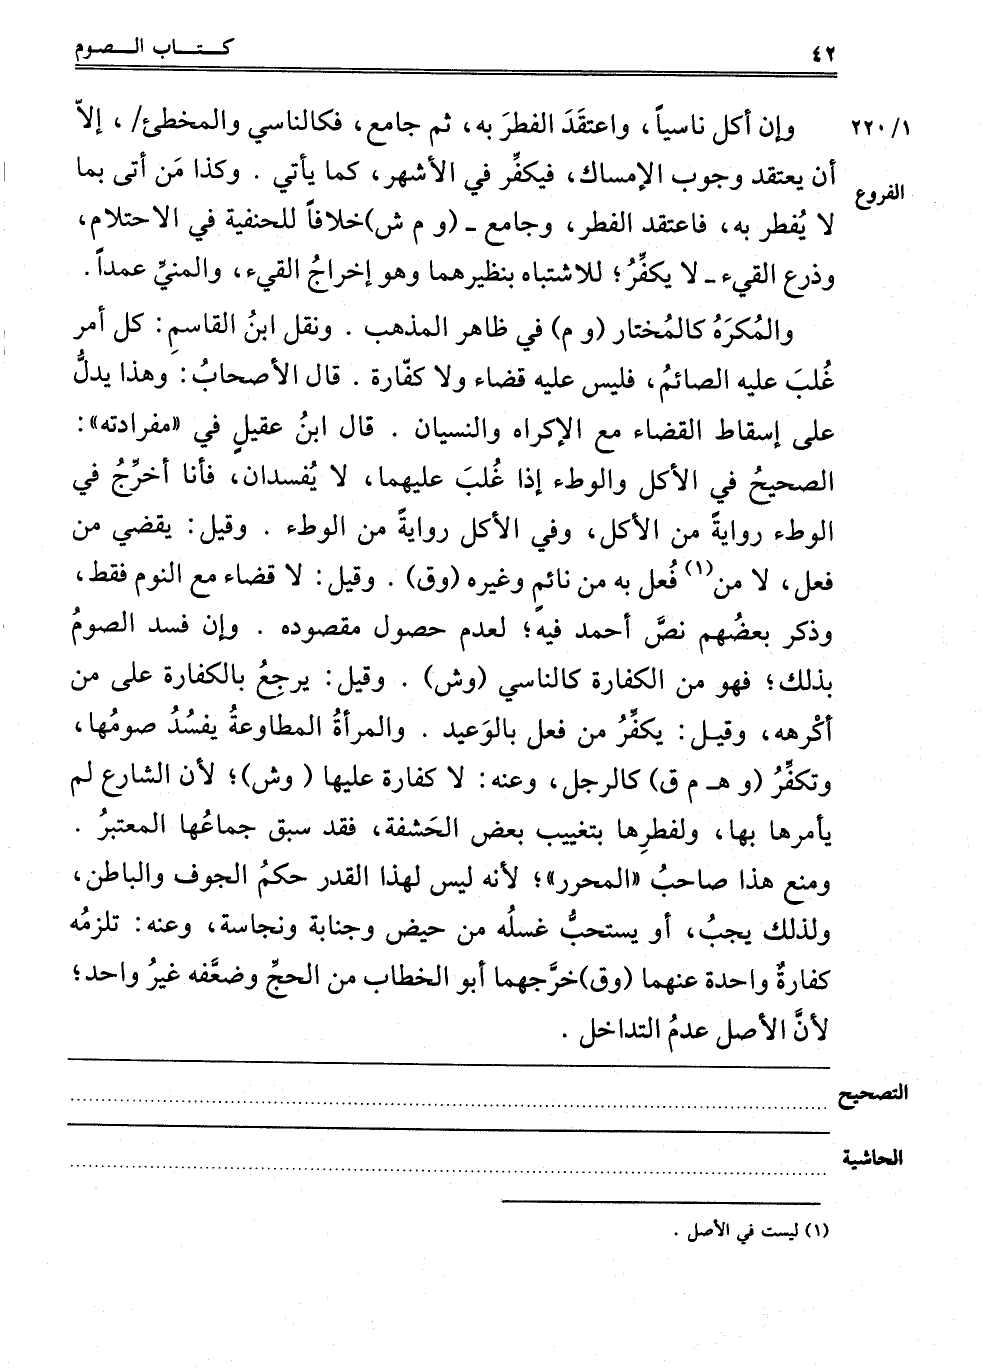 ٤٢ كـتـاب الـصوم
٢٢٠/١ وإن أكل ناسياً، واعتقَدَ الفطرَ به، ثم جامع، فكالناسي والمخطئ/ ، إلاّ
الفروع أن يعتقد وجوب الإمساك، فيكفِّر في الأشهر، كما يأتي . وكذا مَن أتى بما
لا يُفطر به، فاعتقد الفطر، وجامع ـ (و م ش)خلافاً للحنفية في الاحتلام،
وذرع القيء ـ لا يكفِّرُ؛ للاشتباه بنظيرهما وهو إخراجُ القيء، والمنيِّ عمداً.
والمُكرَهُ كالمُختار (و م) في ظاهر المذهب . ونقل ابنُ القاسمِ: كل أمر
غُلبَ عليه الصائمُ، فليس عليه قضاء ولا كفّارة . قال الأصحابُ: وهذا يدلُّ
على إسقاط القضاء مع الإكراه والنسيان . قال ابنُ عقيلٍ في «مفرادته»:
الصحيحُ في الأكل والوطء إذا غُلبَ عليهما، لا يُفسدان، فأنا أخرِّجُ في
الوطء روايةً من الأكل، وفي الأكل روايةً من الوطء . وقيل: يقضي من
فعل، لا من(١) فُعل به من نائمٍ وغيره (وق) . وقيل: لا قضاء مع النوم فقط،
وذكر بعضُهم نصَّ أحمد فيه؛ لعدم حصول مقصوده . وإن فسد الصومُ
بذلك؛ فهو من الكفارة كالناسي (وش) . وقيل: يرجعُ بالكفارة على من
أكْرهه، وقيـل: يكفِّرُ من فعل بالوَعيد . والمرأةُ المطاوعةُ يفسُدُ صومُها،
وتكفِّرُ (و هـ م ق) كالرجل، وعنه: لا كفارة عليها ( وش)؛ لأن الشارع لم
يأمرها بها، ولفطرِها بتغييب بعض الحَشفة، فقد سبق جماعُها المعتبرُ .
ومنع هذا صاحبُ «المحرر»؛ لأنه ليس لهذا القدر حكمُ الجوف والباطن،
ولذلك يجبُ، أو يستحبُّ غسلُه من حيض وجنابة ونجاسة، وعنه: تلزمُه
كفارةٌ واحدة عنهما (وق)خرَّجهما أبو الخطاب من الحجِّ وضعَّفه غيرُ واحد؛
لأنَّ الأصل عدمُ التداخل .
التصحيح ................
الحاشية ................
(١) ليست في الأصل .